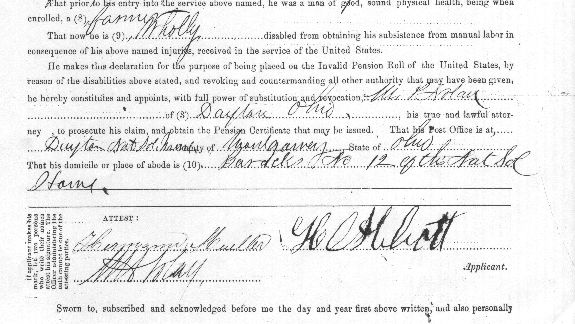 That prior to his entry into the service above named, he was a man of good, sound physical health, being when
enrolled, a (8)
That now he is (9) Wholly disabled from obtaining his subsistence from manual labor in
consequence of his above named injuries, received in the service of the United States.
He makes this declaration for the purpose of being placed on the Invalid Pension Roll of the United States, by
reason of the disabilities above stated, and revoking and countermanding all other authority that may have been given,
he hereby constitutes and appoints, with full power of substitution and revocation,
of (3) Dayton Ohio, his true and lawful attor-
ney to prosecute his claim, and obtain the Pension Certificate that may be issued. That his Post Office is at
Dayton County of Montgomery, State of Ohio
That his domicile or place of abode is (10) Barracks No 12 of the Nat Sol
Home
ATTEST:
If applicant makes his
mark, id two persons
who write their names
H C Abbott
Applicant.
Sworn to, subscribed and acknowledged before me the day and year first above written, and also personally